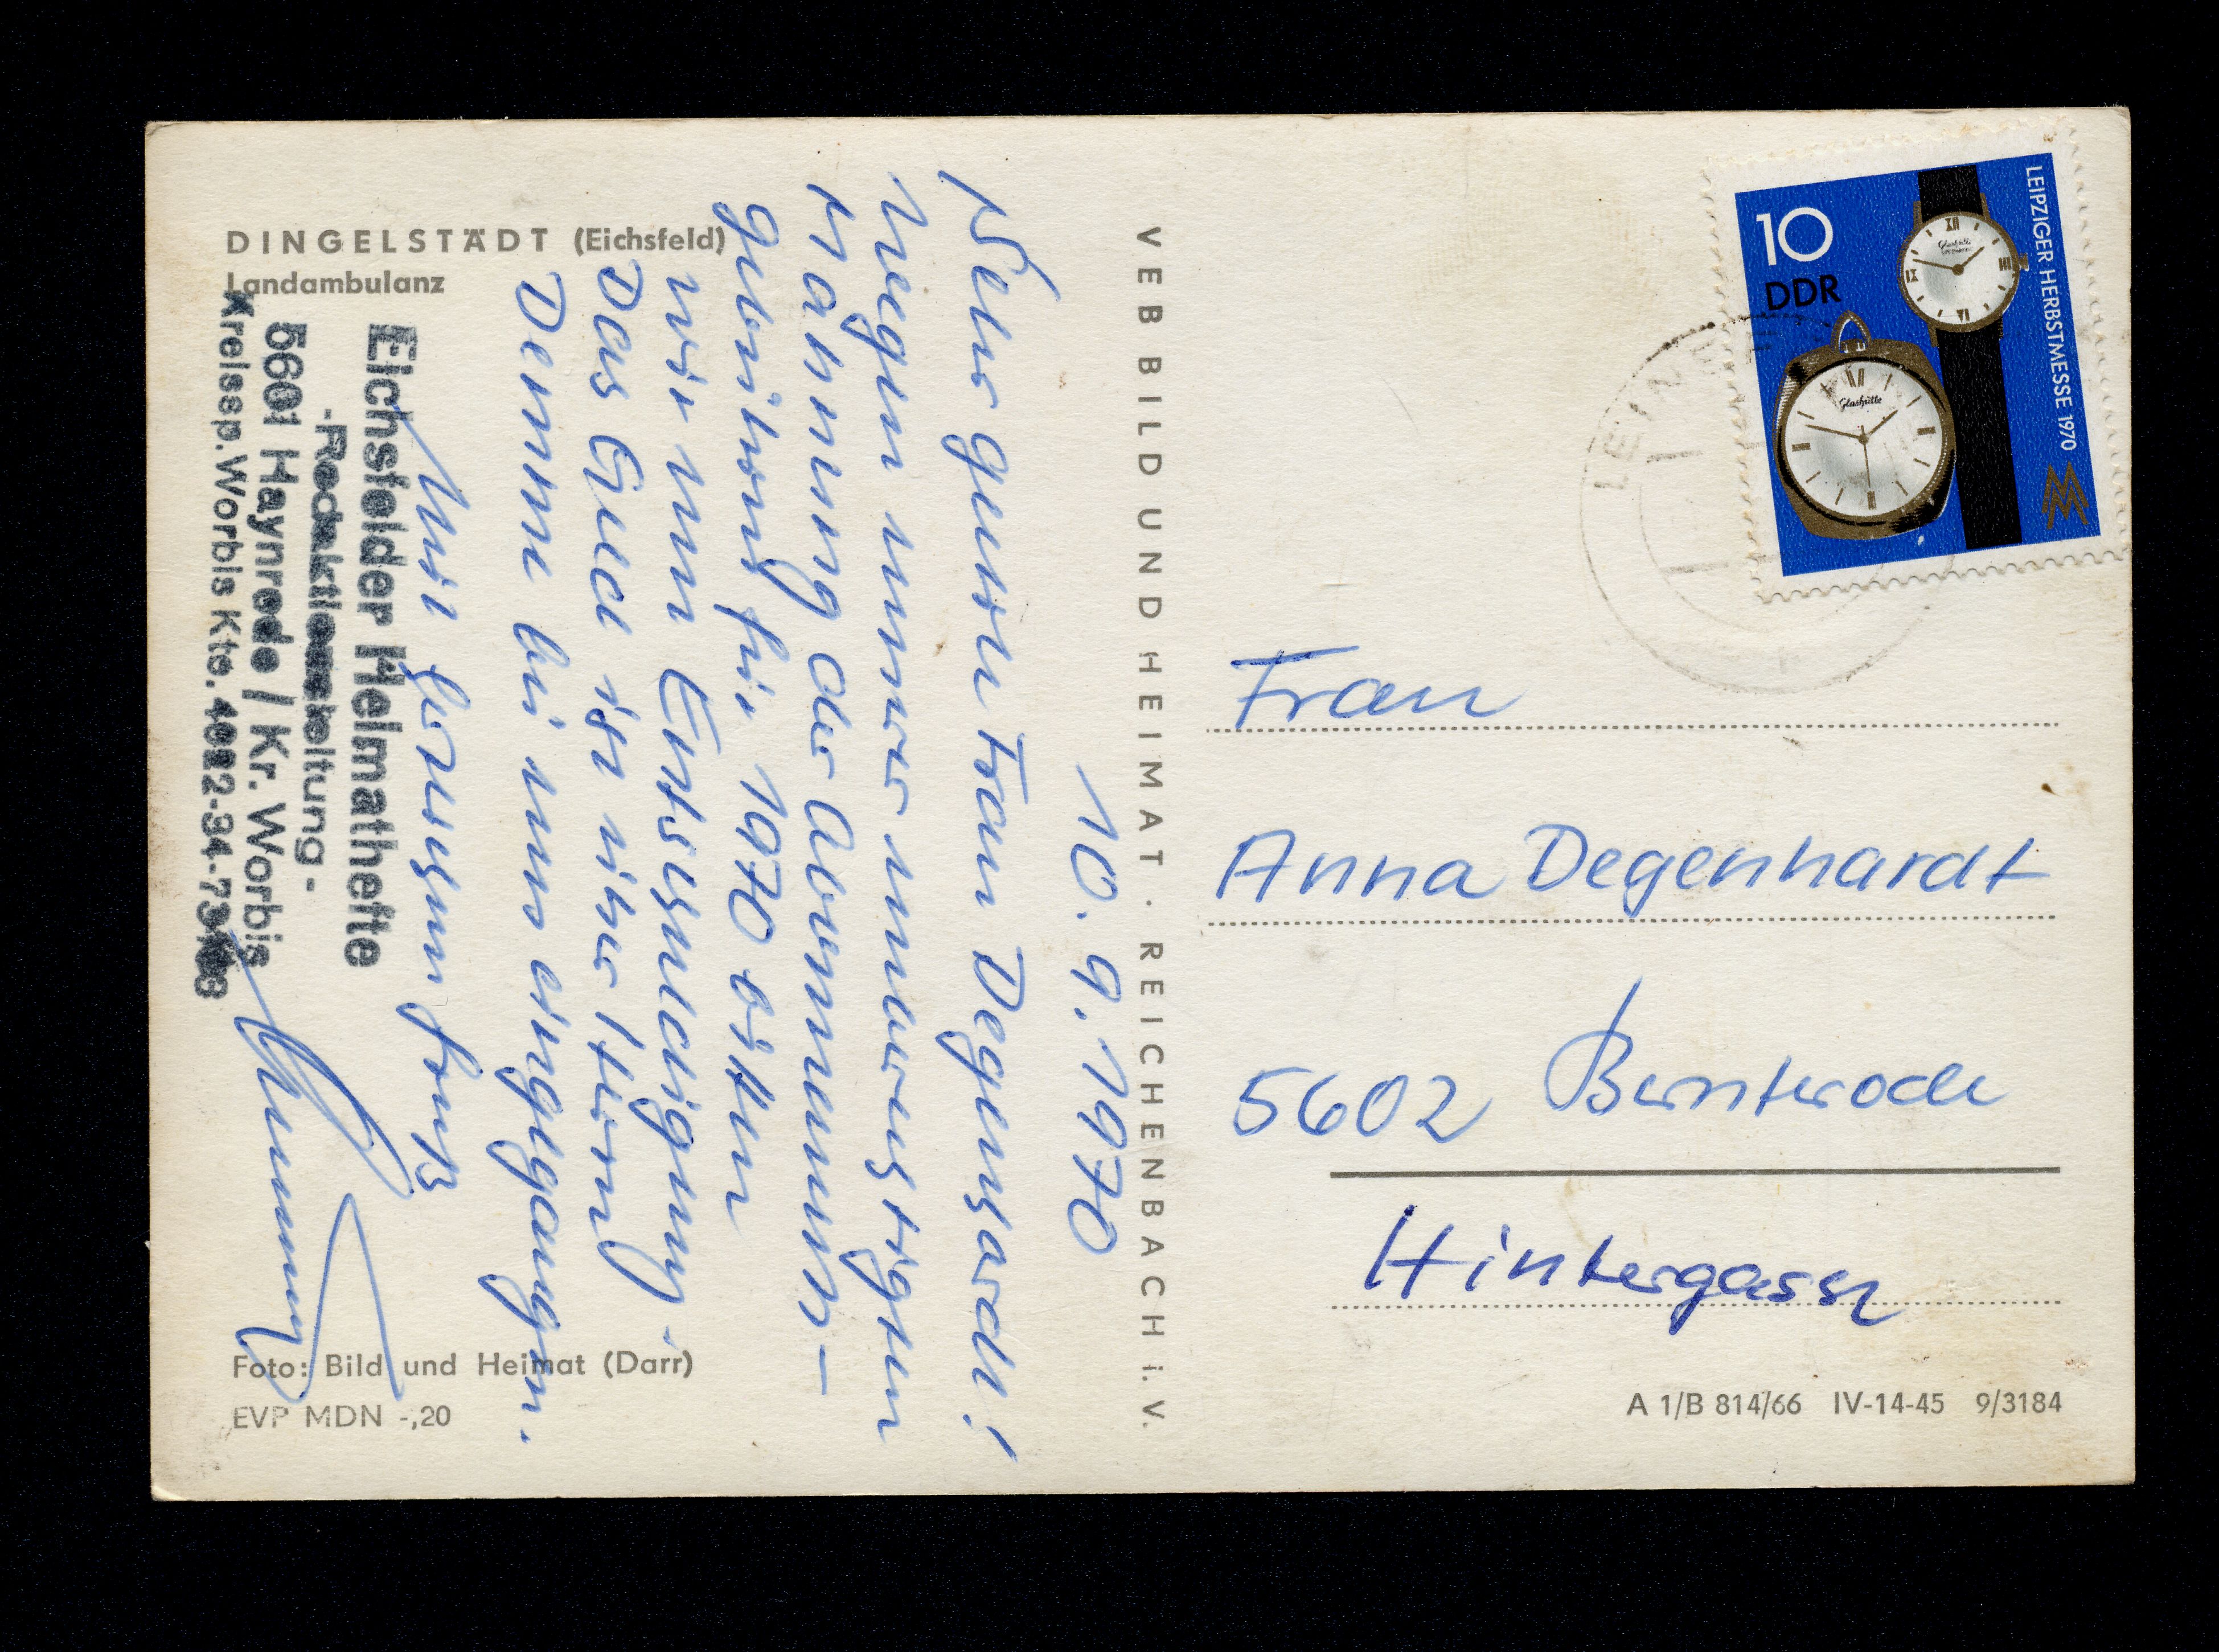 DINGELSTÄDT (Eichsfeld)
Landambulanz
10.9.1970
Sehr geehrte Frau Degenhardt!
Wegen unserer
Mahnung der Abonnements-
gebühren für 1970 bitten
wir um Entschuldigung.
Das Geld ist
bei uns eingegangen.
Mit herzlichem Gruß
Eichsfelder Heimathefte
-Redaktionsleitung-
5601 Haynrode / Kr. Worbis
Kreissp. Worbis Kto. 4082-34-
Foto: Bild und Heimat (Darr)
EVP MDN -,20
VEB BILD UND HEIMAT · REICHENBACH i. V.
10
DDR
LEIPZIGER HERBSTMESSE 1970
MM
Glashütte
Glashütte
Frau
Anna Degenhardt
5602 Bernterode
Hintergasse
A 1/B 814/66 IV-14-45 9/3184